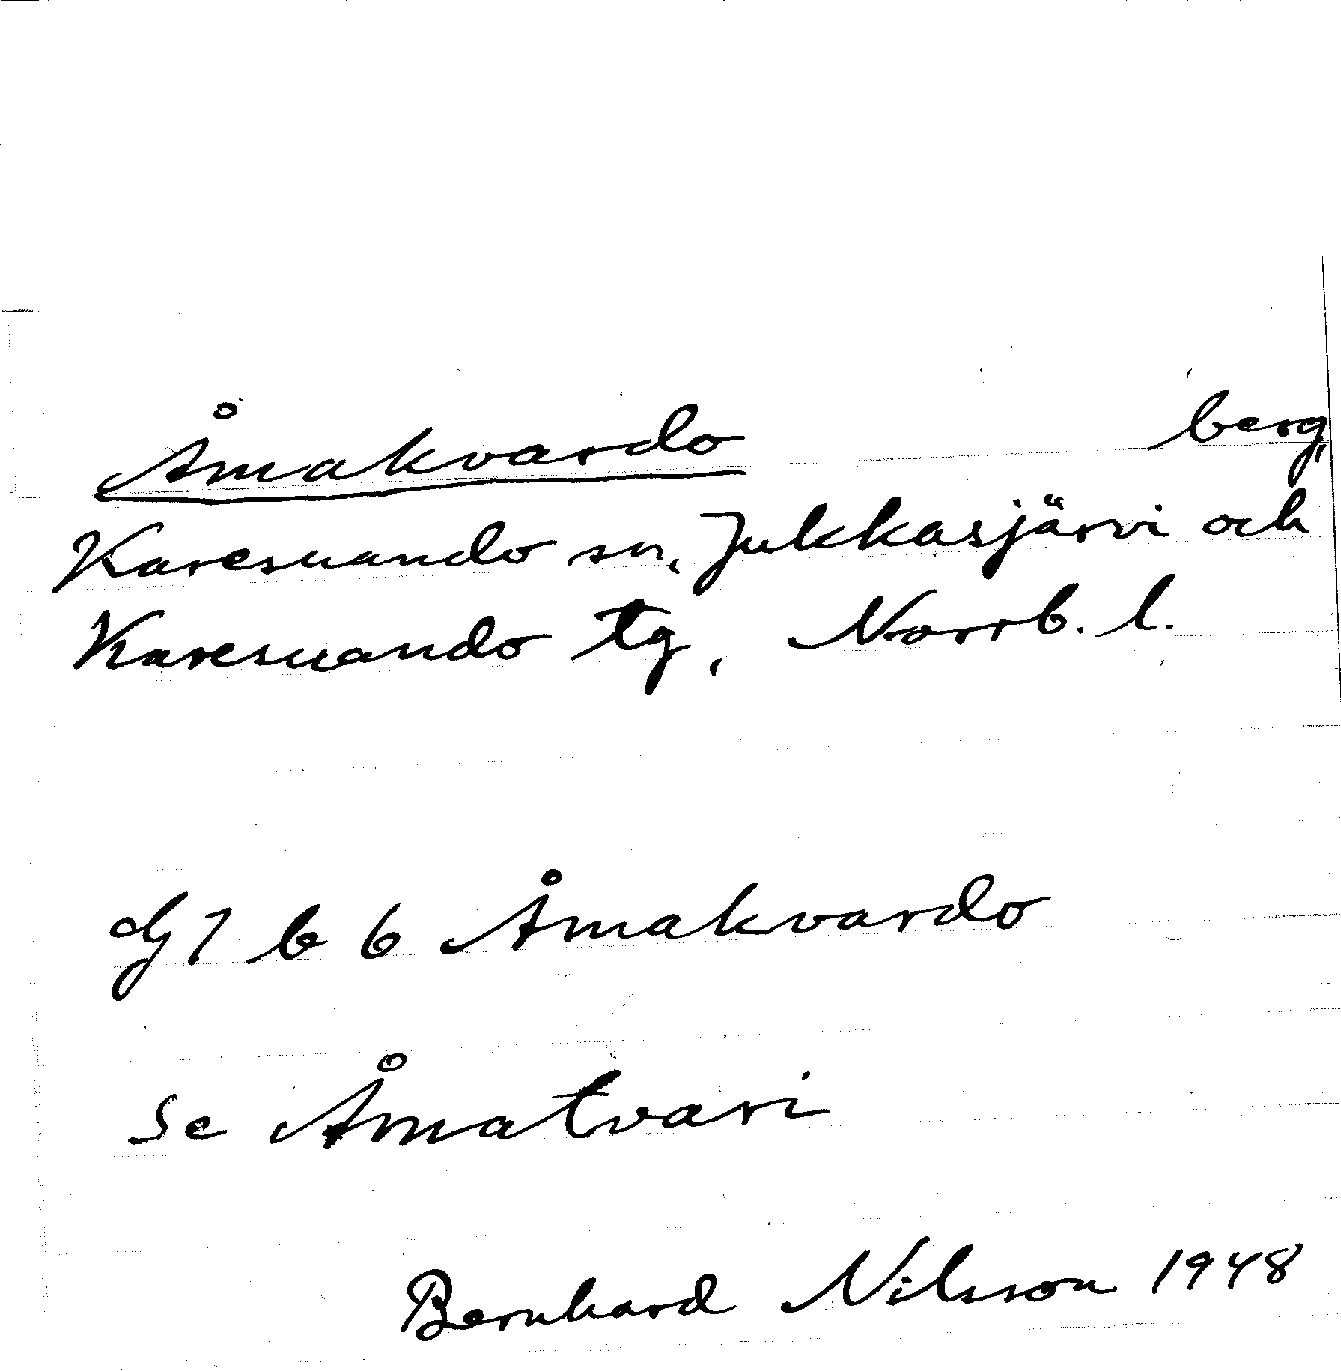 Åmakvardo berg,
Karesuando sn, Jukkasjärvi och
Karesuando tg, Norrb. l.
dg 7 b 6 Åmakvardo
se Åmatvari
Bernhard Nilsson 1948